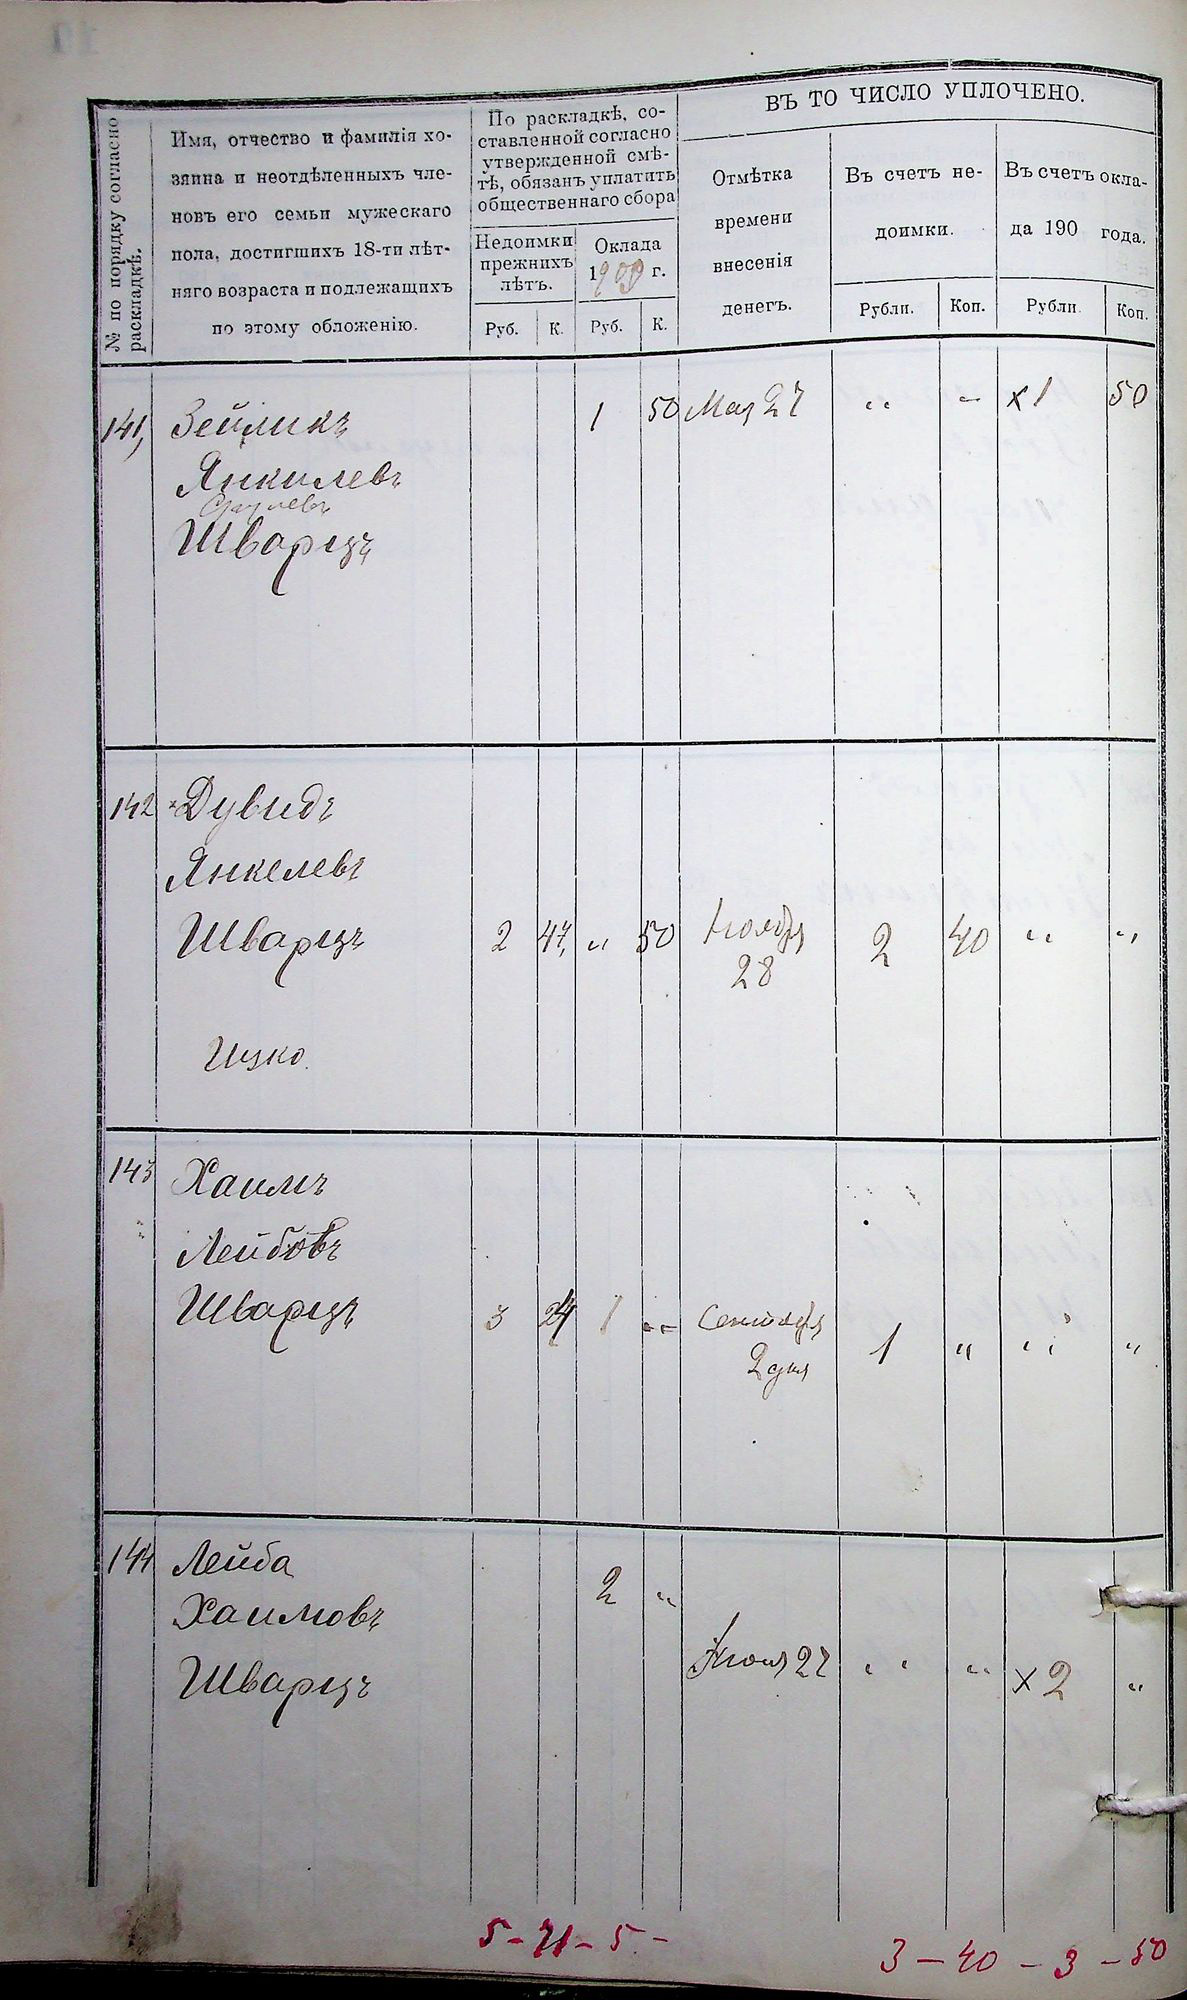 № по порядку согласно раскладкѣ.
Имя, отчество и фамилія хо-
зяина и неотдѣленныхъ чле-
новъ его семьи мужескаго
пола, достигшихъ 18-ти лѣт-
няго возраста и подлежащихъ
по этому обложенію.
По раскладкѣ, со-
ставленной согласно
утвержденной смѣ-
тѣ, обязанъ уплатить
общественнаго сбора
Недоимки
прежнихъ
лѣтъ.
Оклада
1909 г.
Руб. К. Руб. К.
ВЪ ТО ЧИСЛО УПЛОЧЕНО.
Отмѣтка
времени
внесенія
денегъ.
Въ счетъ не-
доимки.
Въ счетъ окла-
да 190 года.
Рубли. Коп. Рубли. Коп.
141, Зейликъ 1 50 Мая 27 „ „ х 1 50
Янкилевъ
Шварцъ
142 Дувидъ
Янкелевъ
Шварцъ 2 47, „ 50 Ноября 28 2 40 „ „
Ицко
143 Хаимъ
Лейбовъ
Шварцъ 3 24 1 „ Сентября 2 дня 1 „ „ „
144 Лейба 2 „
Хаимовъ
Шварцъ 27 „ „ х 2 „
5 – 71 – 5 –
3 – 40 – 3 – 50